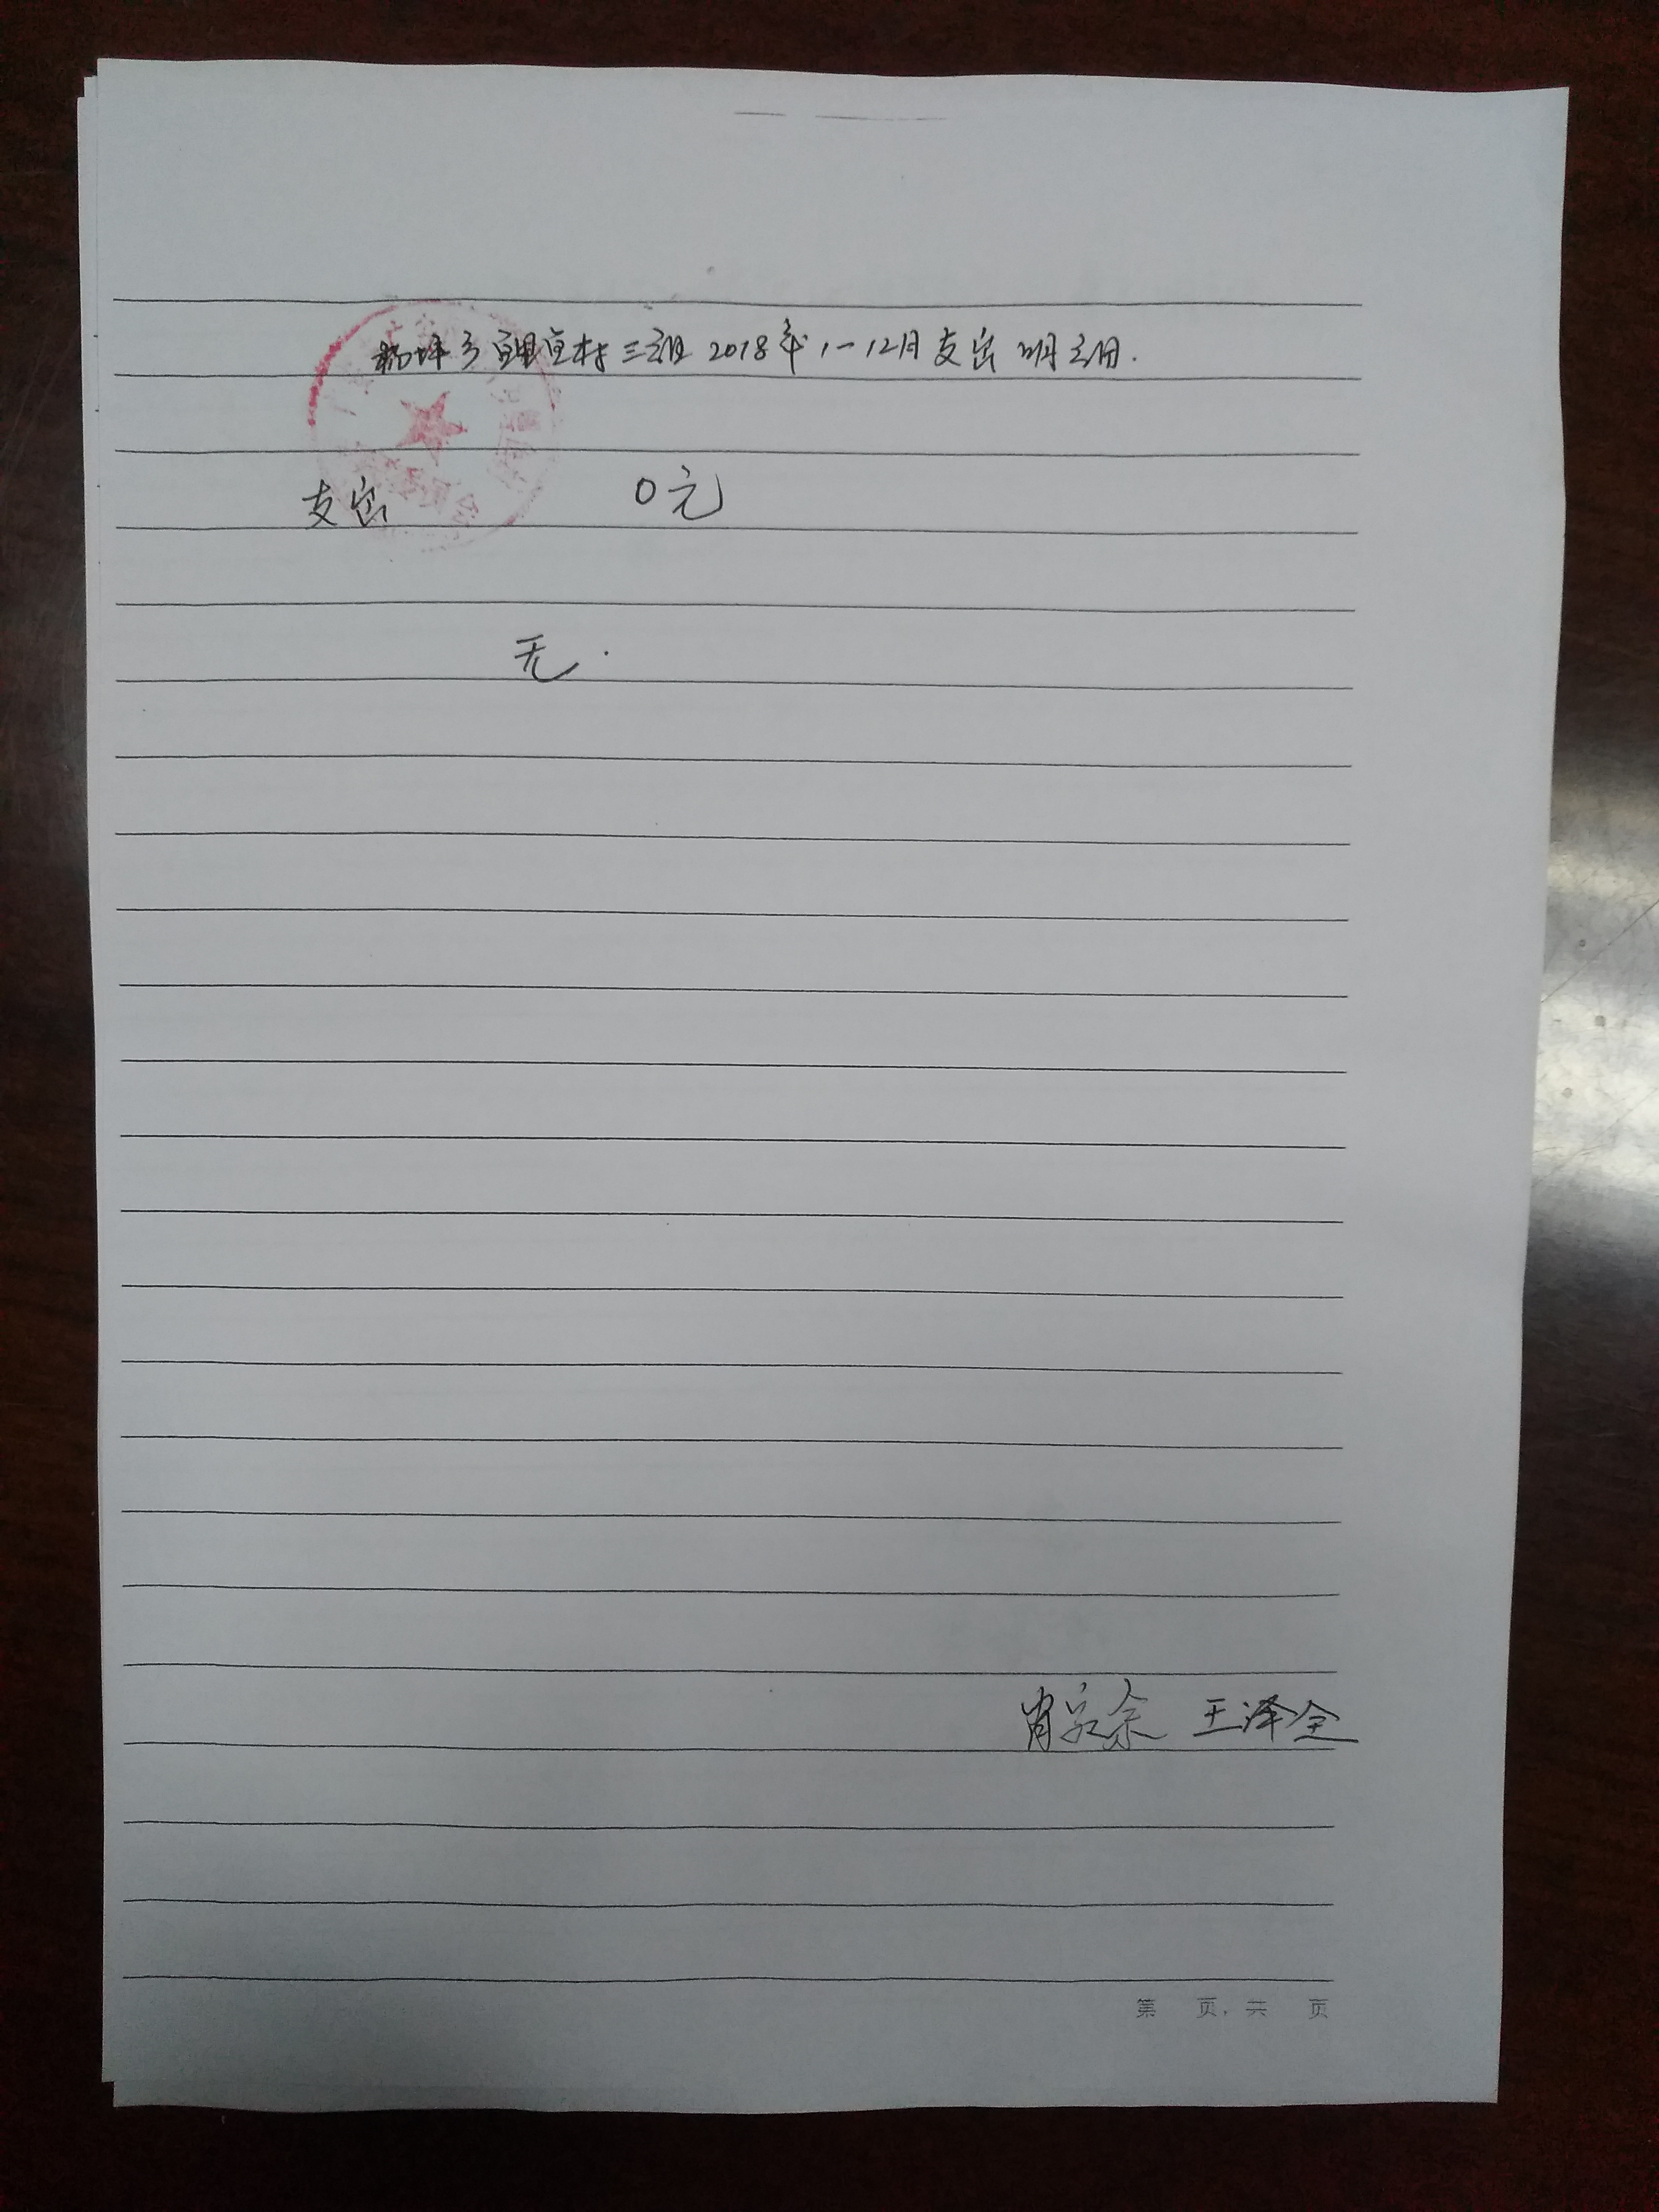 杨坪乡鲤鱼村三组2018年1-12月支出明细.
支出 0元
无.
肖家余 王泽全
第 页, 共 页